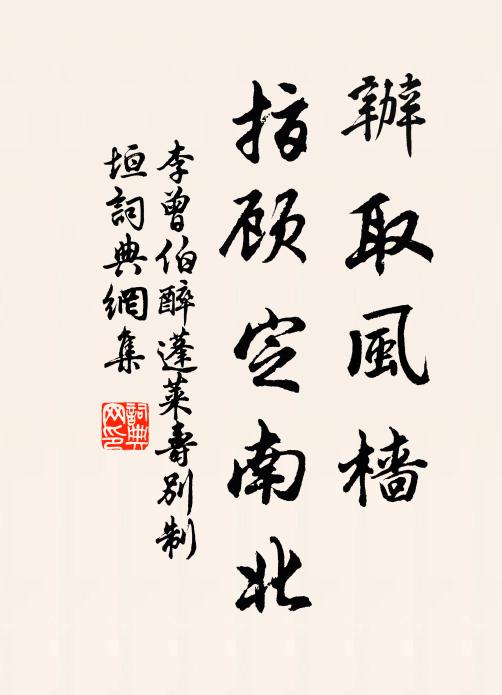 辦取風檣
指顾定南北
李曾伯醉蓬莱壽別制
垣詞典網集
詞典网印